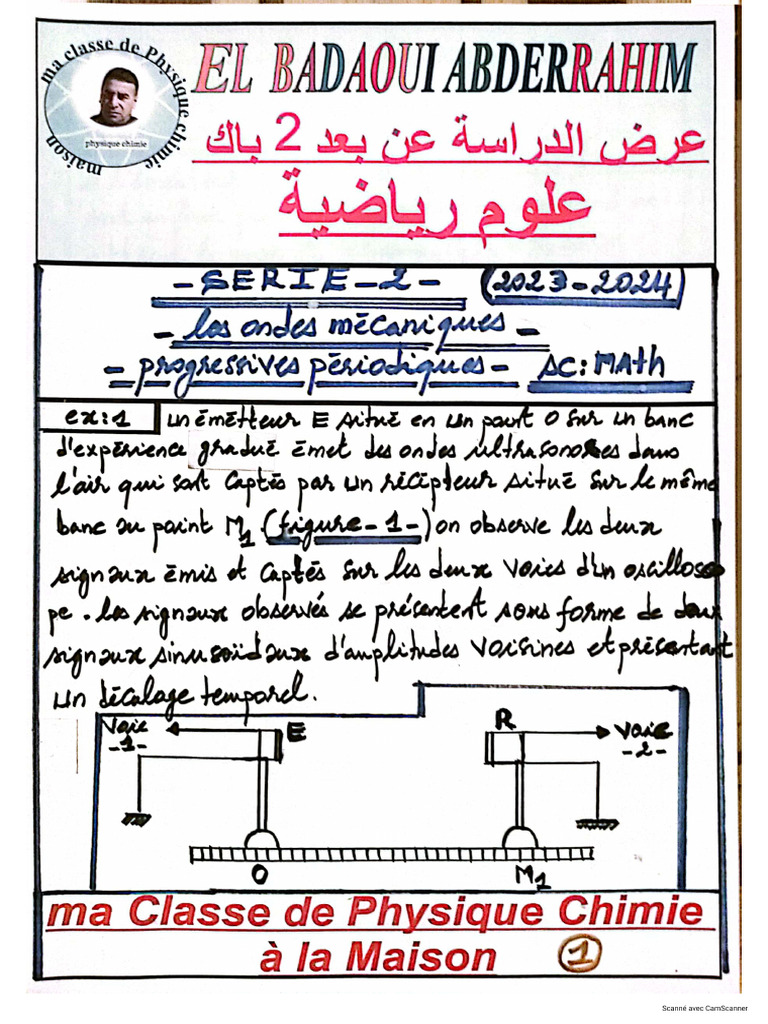 ma classe de Physique chimie
maison
physique chimie
EL BADAOUI ABDERRAHIM
عرض الدراسة عن بعد 2 باك
علوم رياضية
- SERIE - 2 - (2023-2024)
- les ondes mécaniques -
- progressives périodiques - SC: MATH
ex: 1 un émetteur E situé en un point O sur un banc
d'expérience gradué émet des ondes ultrasonores dans
l'air qui sont captés par un récepteur situé sur le même
banc au point M1 (figure-1-) on observe les deux
signaux émis et captés sur les deux voies d'un oscillosco
pe. les signaux observés se présentent sous forme de deux
signaux sinusoïdaux d'amplitudes voisines et présentant
un décalage temporel.
Voie
-1-
E
R
Voie
-2-
O
M1
ma Classe de Physique Chimie
à la Maison 1
Scanné avec CamScanner